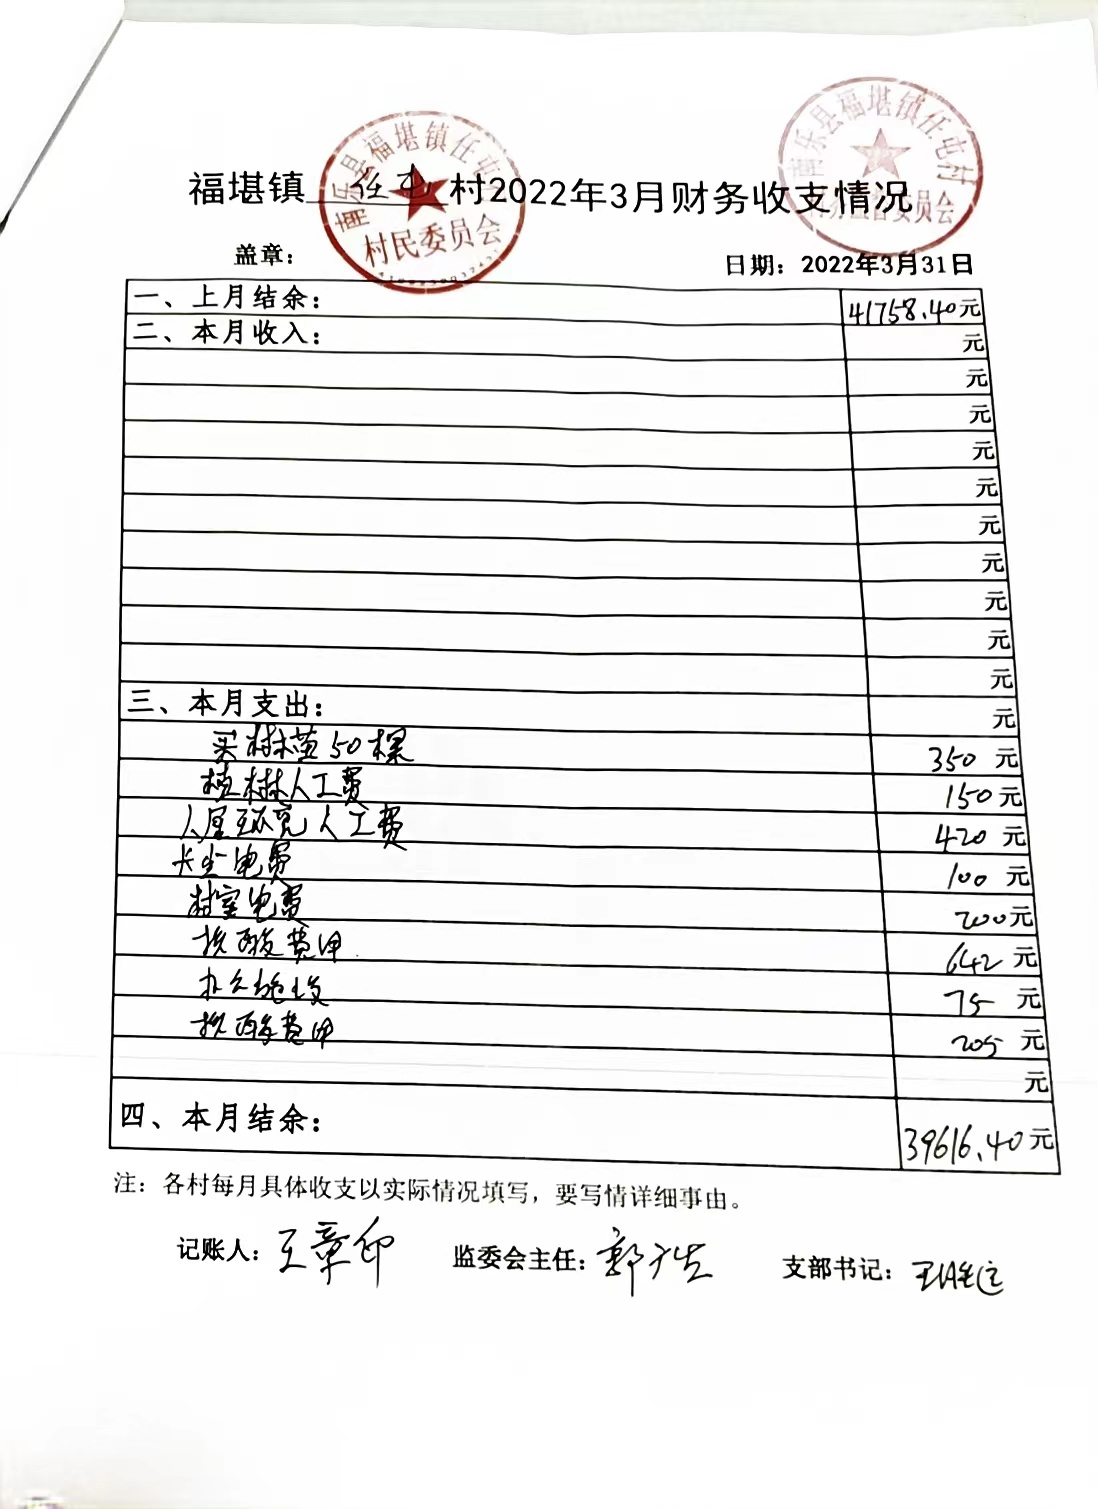 南乐县福堪镇任屯村
村民委员会
南乐县福堪镇任屯村
委员会
福堪镇任屯村2022年3月财务收支情况
盖章：
日期：2022年3月31日
一、上月结余： 41758.40元
二、本月收入： 元
元
元
元
元
元
元
元
元
元
三、本月支出： 元
买树苗50棵 350元
植树人工费 150元
人居环境人工费 420元
电费 100元
村室电费 200元
费用 642元
75元
费用 205元
元
四、本月结余： 39616.40元
注：各村每月具体收支以实际情况填写，要写情详细事由。
记账人：王章印 监委会主任：郭广 支部书记：王